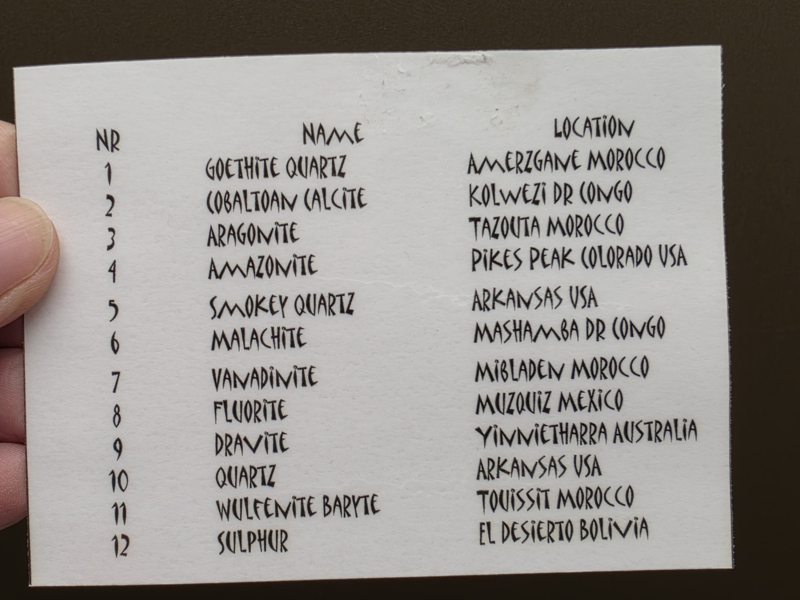 NR NAME LOCATION
1 GOETHITE QUARTZ AMERZGANE MOROCCO
2 COBALTOAN CALCITE KOLWEZI DR CONGO
3 ARAGONITE TAZOUTA MOROCCO
4 AMAZONITE PIKES PEAK COLORADO USA
5 SMOKEY QUARTZ ARKANSAS USA
6 MALACHITE MASHAMBA DR CONGO
7 VANADINITE MIBLADEN MOROCCO
8 FLUORITE MUZQUIZ MEXICO
9 DRAVITE YINNIETHARRA AUSTRALIA
10 QUARTZ ARKANSAS USA
11 WULFENITE BARYTE TOUISSIT MOROCCO
12 SULPHUR EL DESIERTO BOLIVIA